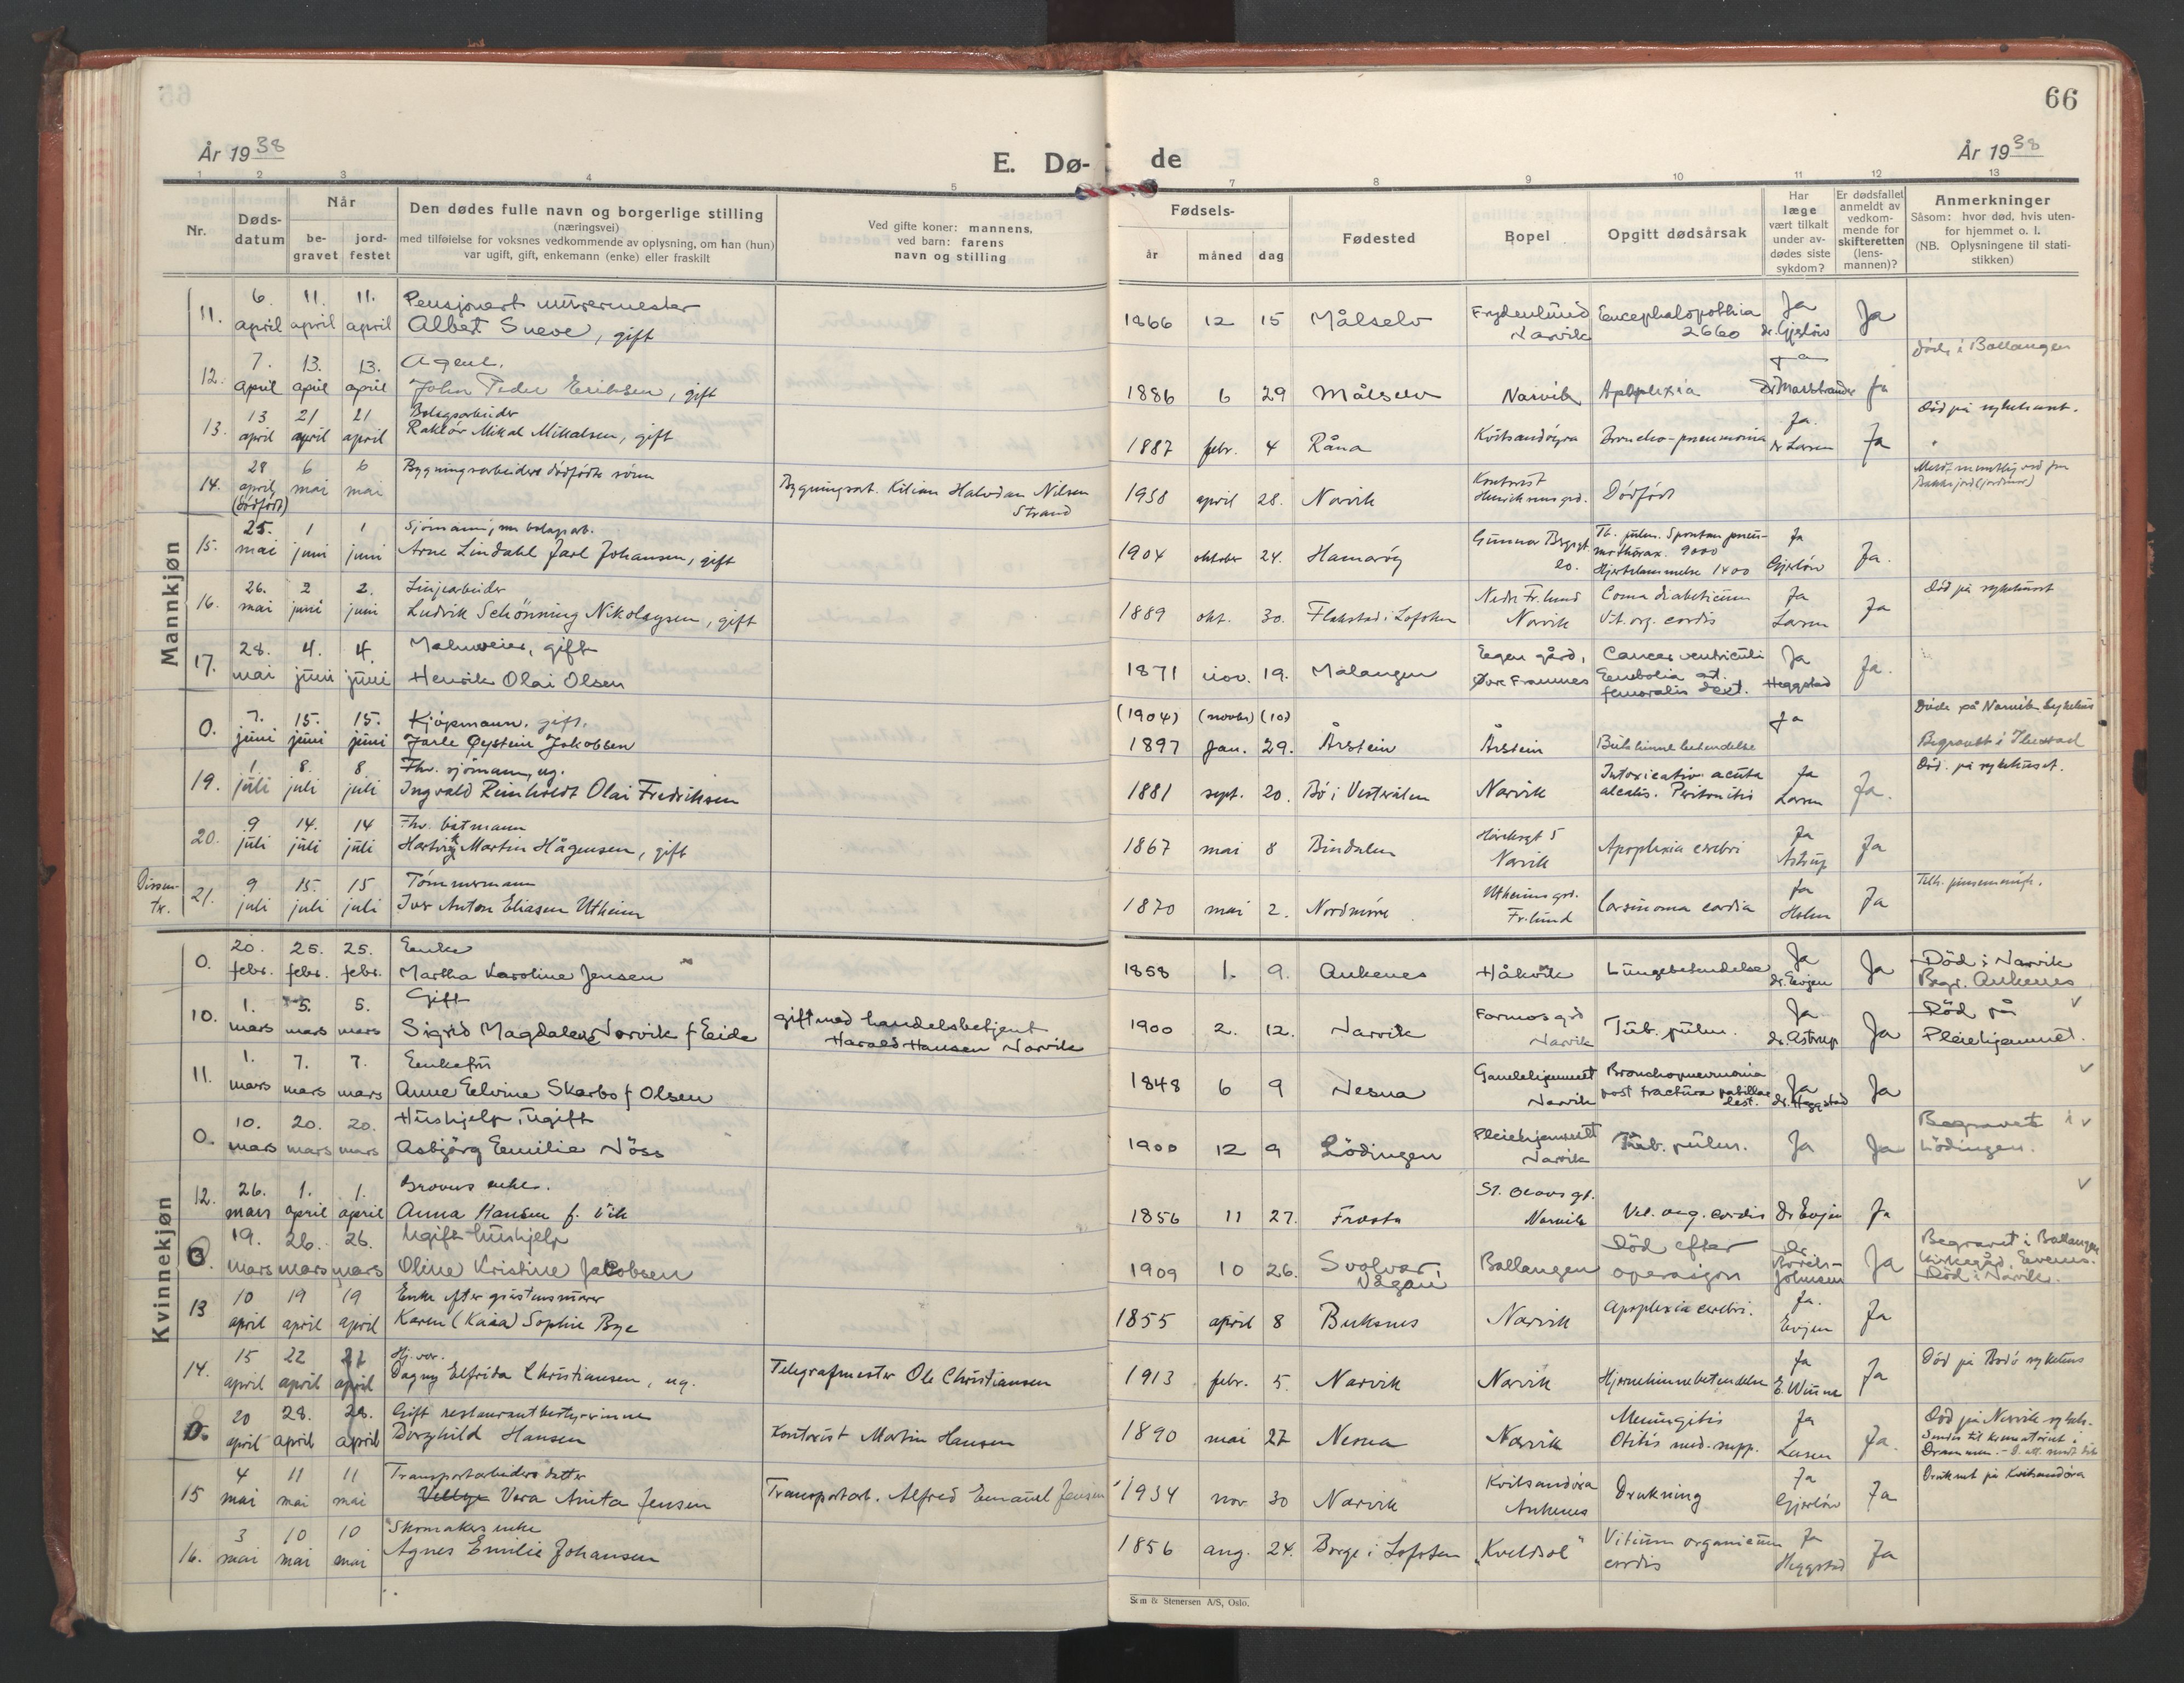 66
År 1938
E. Dø-
de
År 1938
1 2 3 4 5 7 8 9 10 11 12 13
Nr.
Døds-
datum
Når
be-
gravet
jord-
festet
Den dødes fulle navn og borgerlige stilling
(næringsvei)
med tilføielse for voksnes vedkommende av oplysning, om han (hun)
var ugift, gift, enkemann (enke) eller fraskilt
Ved gifte koner: mannens,
ved barn: farens
navn og stilling
Fødsels-
år
måned
dag
Fødested
Bopel
Opgitt dødsårsak
Har
læge
vært tilkalt
under av-
dødes siste
sykdom?
Er dødsfallet
anmeldt av
vedkom-
mende for
skifteretten
(lens-
mannen)?
Anmerkninger
Såsom: hvor død, hvis uten-
for hjemmet o. l.
(NB. Oplysningene til stati-
stikken)
Mannkjøn
6. 11. 11. Pensjonert murermester
11. april april april Albert Sneve, gift
1866 12 15 Målselv Frydenlund Narvik Encephalopathia 2660 Ja dr. Gjerløw Ja
7. 13. 13. Agent.
12. april april april John Peder Eriksen, gift
1886 6 29 Målselv Narvik Apoplexia Ja Dr Marstrander Ja Døde i Ballangen
13 21 21 Bolagsarbeider
13. april april april Mikal Mikalsen, gift
1887 febr. 4 Råna Kvitsandøyra Broncho-pneumonia Ja. dr Larsen Ja Død på sykehuset.
28 6 6 Bygningsarbeiders dødfødte sønn
14. april mai mai
(dødfødt)
Bygningsarb. Kilian Halvdan Nilsen
Strand
1938 april 28. Narvik Kontorist Dødfødt
25. 1 1 Sjømann, nu bolagsarb.
15. mai juni juni Arne Lindahl Jarl Johansen, gift
1904 oktober 24. Hamarøy Gunnar Bergsgt. 20. Tb. pulm. Spontan pneu-
mothorax. 9000
Hjertelammelse 1400 Ja Gjerløw Ja.
26. 2 2. Linjearbeider
16. mai juni juni Ludvik Schønning Nikolaysen, gift
1889 okt. 30. Flakstad i Lofoten Nedre Fr.lund Narvik Coma diabeticum
Vit. org. cordis Ja Larsen Ja Død på sykehuset
28. 4. 4. Malmveier, gift
17. mai juni juni Henrik Olai Olsen
1871 nov. 19. Malangen Egen gård, Øvre Framnes Cancer ventriculi
Embolia art.
femoralis dext. Ja Heggstad Ja.
7. 15. 15. Kjøpmann. gift.
0. juni juni juni Jarle Øystein Jakobsen
(1904) (novbr) (10)
1897 Jan. 29. Årstein Årstein Bukhinnebetendelse Ja Døde på Narvik Sykehus
Begravet i Ibestad
1. 8. 8 Fhv. sjømann, ug.
19. juli juli juli Ingvald Reinholdt Olai Fredriksen
1881 sept. 20. Bø i Vesterålen Narvik Intoxicatio acuta
alcalis. Peritonitis Ja Larsen Ja. Død. på sykehuset.
9 14. 14 Fhv. båtmann
20. juli juli juli Hartvig Martin Hågensen, gift
1867 mai 8 Bindalen Håreksgt 5 Narvik Apoplexia cerebri Ja Astrup Ja
Dissen-
tr.
9 15. 15 Tømmermann
21. juli juli juli Iver Anton Eliasen Utheim
1870 mai 2. Nordmøre Utheimsgrd. Fr.lund Carsinoma cardia Ja Holm Ja Tilh. pinsemenigh.
Kvinnekjøn
20. 25. 25. Enke
0. febr. febr. febr. Martha Karoline Jensen
1858 1. 9. Ankenes Håkvik Lungebetendelse Ja dr. Evjen Ja Død i Narvik
Begr. Ankenes
1. 5. 5. Gift
10. mars mars mars Sigrid Magdalene Narvik f Eide
gift med handelsbetjent
Harald Hansen Narvik
1900 2. 12. Narvik Formosgrd Narvik Tub. pulm. Ja dr. Astrup Ja Død på
Pleiehjemmet.
1. 7. 7. Enkefru
11. mars mars mars Anne Elvine Skarbo f Olsen
1848 6 9 Nesna Gamlehjemmet Narvik Bronchopneumonia
post fractura patillae
dest. Ja dr. Heggstad Ja
10. 20. 20. Hushjelp, ugift
0. mars mars mars Asbjørg Emilie Nöss
1900 12 9 Lödingen Pleiehjemmet Narvik Tub. pulm. Ja Ja Begravet i
Lödingen.
26. 1. 1. Gravers enke.
12. mars april april Anna Hansen f. Vik
1856 11 27. Frosta St. Olavs gt. Narvik Vit. org. cordis Dr Evjen Ja
19. 26. 26. Ugift hushjelp
0. mars mars mars Oline Kristine Jacobsen
1909 10 26. Svolvær, Vågan Ballangen Död efter
operasjon Dr Borch-
Johnsen Ja Begravet i Ballangen
kirkegård, Evenes.
Död i Narvik.
10 19 19 Enke efter
13 april april april Karen (Kaia) Sophie Bye
1855 april 8 Buksnes Narvik Apoplexia cerebri. Ja. Evjen Ja
15 22 22 Hj.vær.
14. april april april Dagny Elfrida Christiansen, ug.
Telegrafmester Ole Christiansen
1913 febr. 5. Narvik Narvik Hjernehinnebetendelse Ja E. Winne Ja Død på Bodø sykehus
20 28. 28. Gift restaurantbestyrerinne
0. april april april Borghild Hansen
Kontorist Martin Hansen
1890 mai 27 Nesna Narvik Meningitis
Otitis med. supp. Ja Larsen Ja. Død på Narvik sykeh.
Sendes til krematoriet i
Drammen.
4 11 11 Transportarbeiders datter
15 mai mai mai Vera Anita Jensen
Transportarb. Alfred Emanuel Jensen
1934 nov. 30 Narvik Kvitsandøra Ankenes Drukning Ja Gjerløw Ja Druknet på Kvitsandøra
3 10 10 Skomakers enke
16. mai mai mai Agnes Emilie Johansen
1856 aug. 24. Borge i Lofoten "Kveldsol" Vitium organicum
cordis Ja Heggstad Ja
Sem & Stenersen A/S, Oslo.